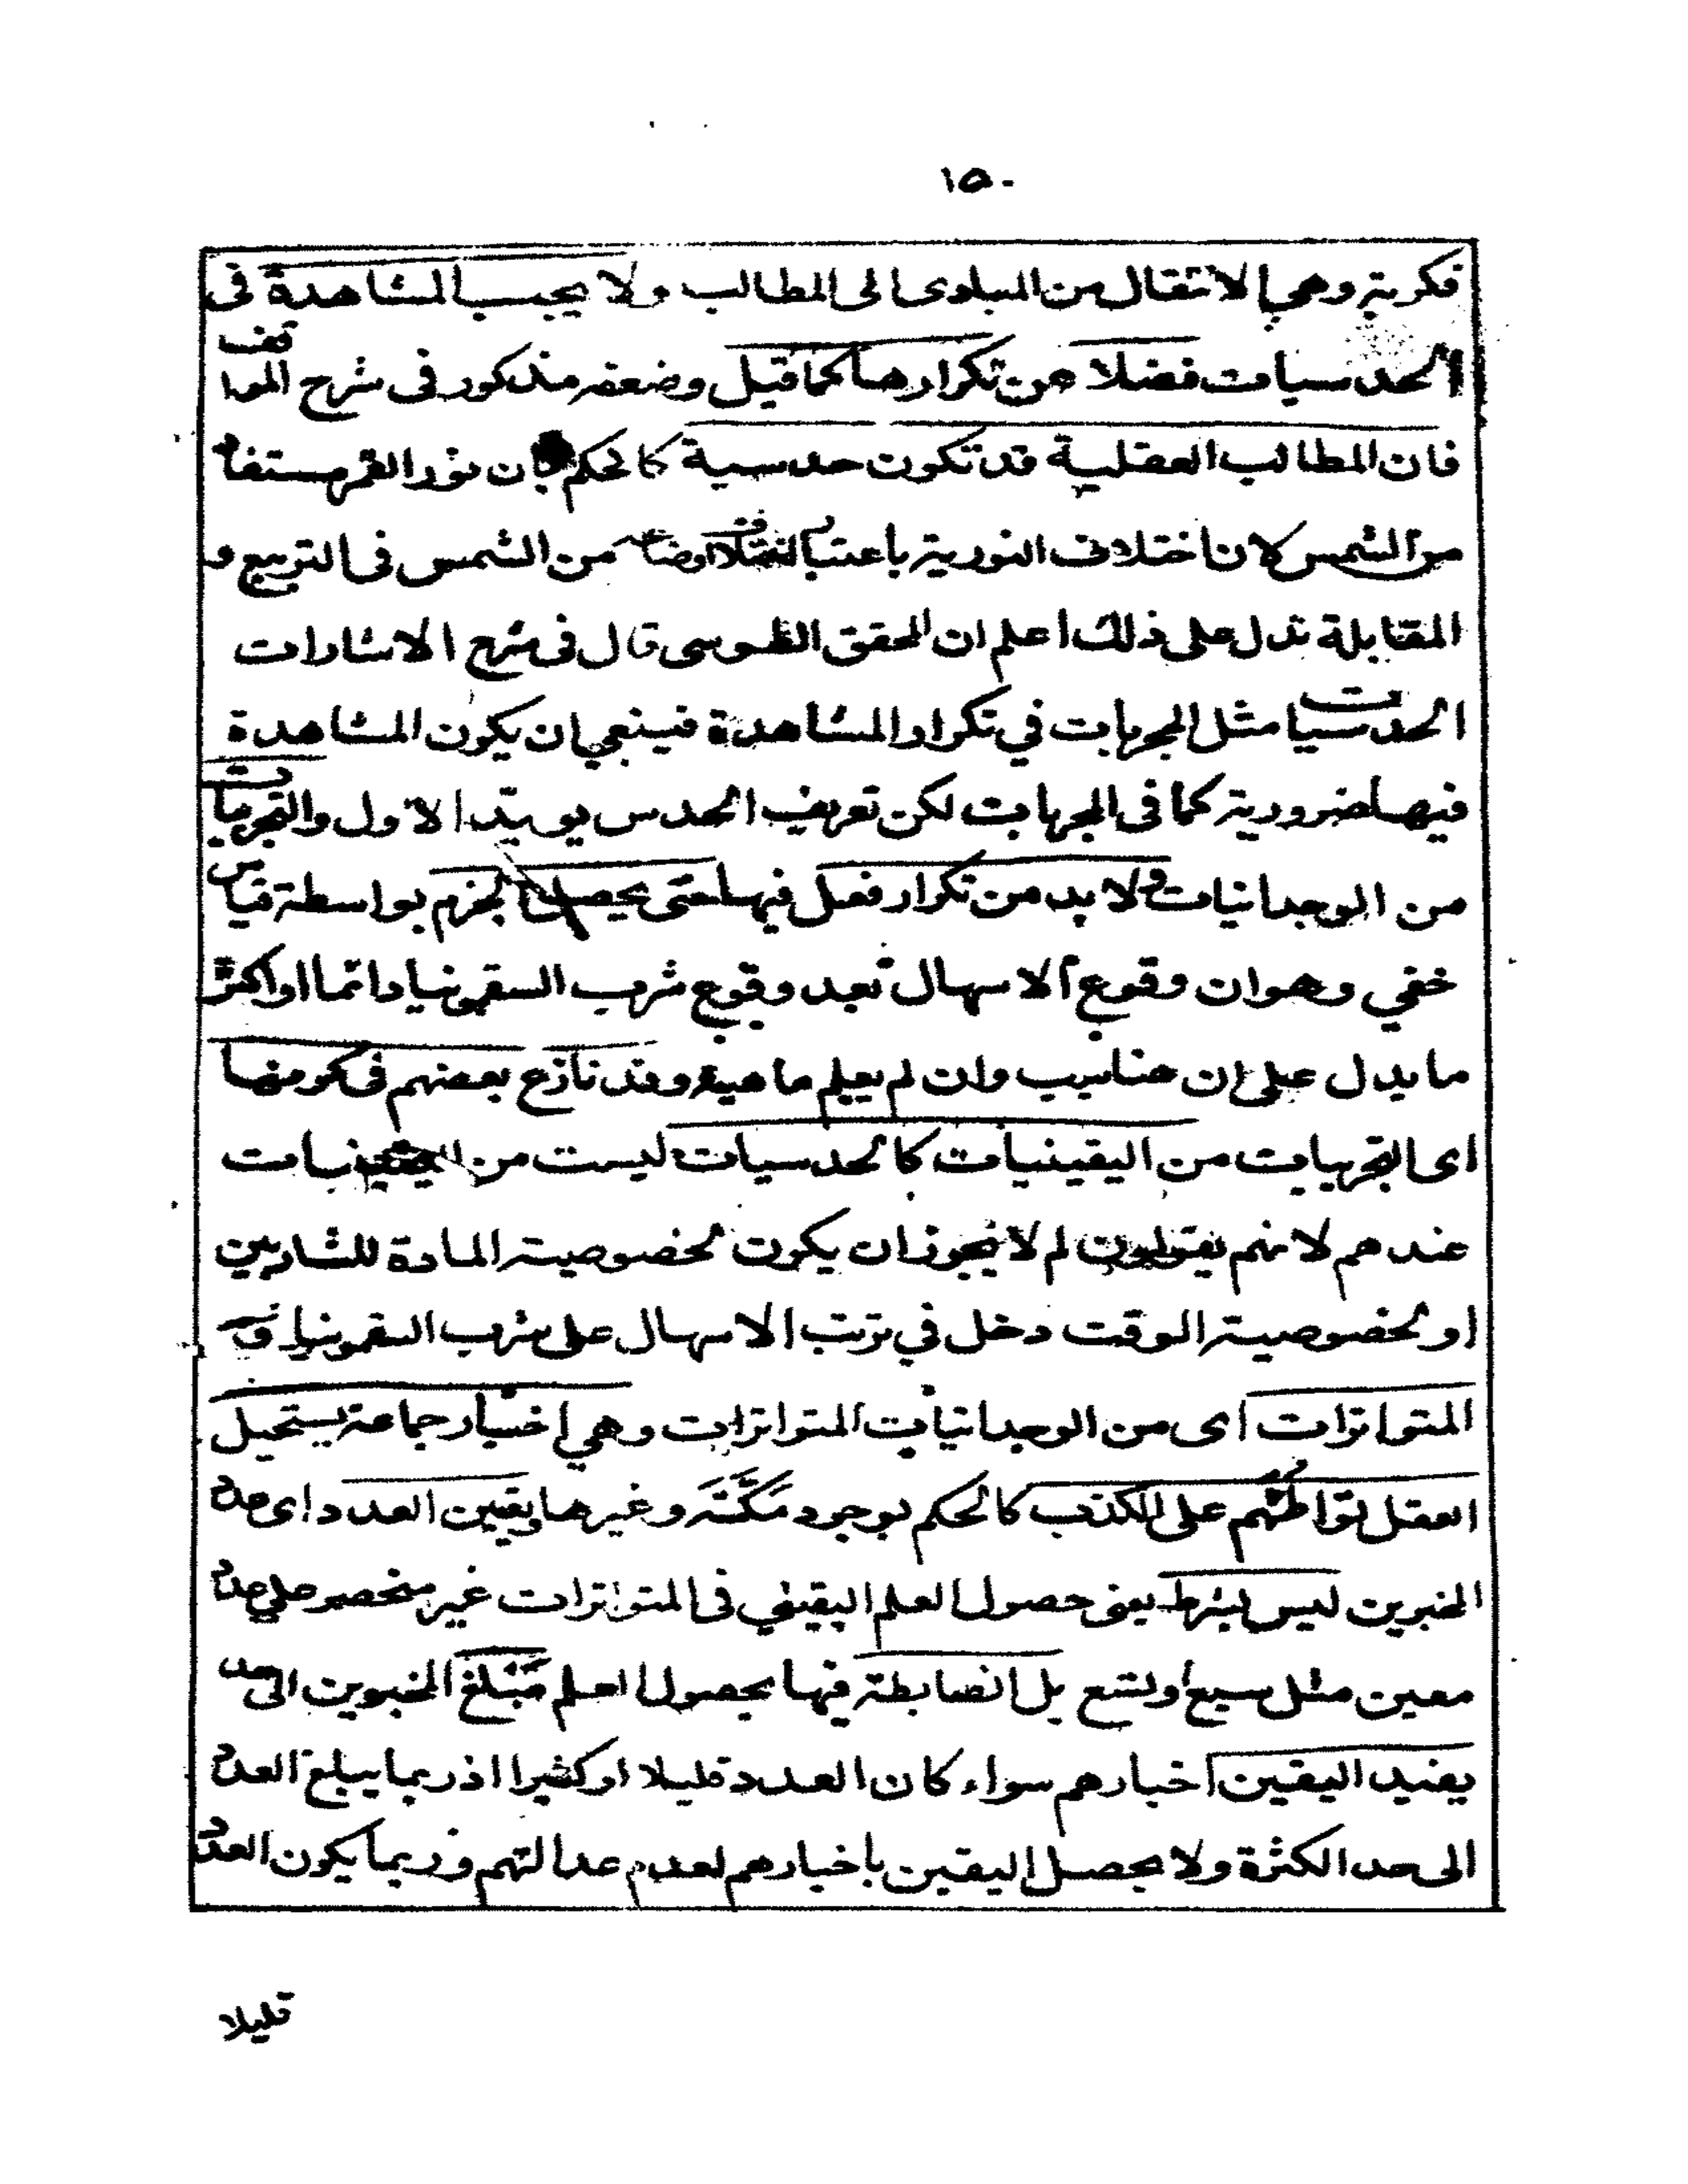 ١٥٠
فكرية وهي الانتقال من المبادى الى المطالب ولا يجب المشاهدة فى
الحدسيات فضلا عن تكرارها كما قيل وضعفه مذكور فى شرح المواقف
فان المطالب العقلية قد تكون حدسية كالحكم بان نور القمر مستفاد
من الشمس لان اختلاف النورية باعتبار اختلاف اوضاعه من الشمس فى التربيع و
المقابلة تدل على ذلك اعلم ان المحقق الطوسى قال فى شرح الاشارات
الحدسيات مثل المجربات في تكرار المشاهدة فينبغي ان يكون المشاهدة
فيها ضرورية كما فى المجربات لكن تعريف الحدس يويد الاول والتجربيات
من الوجدانيات ولا بد من تكرار فعل فيها حتى يحصل الجزم بواسطة قياس
خفي وهو ان وقوع الاسهال بعد وقوع شرب السقمونيا دائما او اكثر
ما يدل على ان هنا سبب وان لم يعلم ماهية وقد نازع بعضهم فى كونها
اى التجربيات من اليقينيات كالحدسيات ليست من اليقينيات
عندهم لانهم يقولون لم لا يجوز ان يكون لخصوصية المادة للشاربين
او لخصوصية الوقت دخل في ترتب الاسهال على شرب السقمونيا و
المتواترات اى من الوجدانيات المتواترات وهي اخبار جماعة يستحيل
العقل تواطئهم على الكذب كالحكم بوجود مَكَّةَ وغيرها يقين العدد اى عدد
المخبرين ليس بشرط يعنى حصول العلم اليقيني فى المتواترات غير منحصر على عدد
معين مثل سبع او تسع بل الضابطة فيها بحصول العلم مَبْلَغ المخبرين الى حد
يفيد اليقين اخبارهم سواء كان العدد قليلا او كثيرا اذ ربما يبلغ العدد
الى حد الكثرة ولا يحصل اليقين باخبارهم لعدم عدالتهم وربما يكون العدد
قليلا